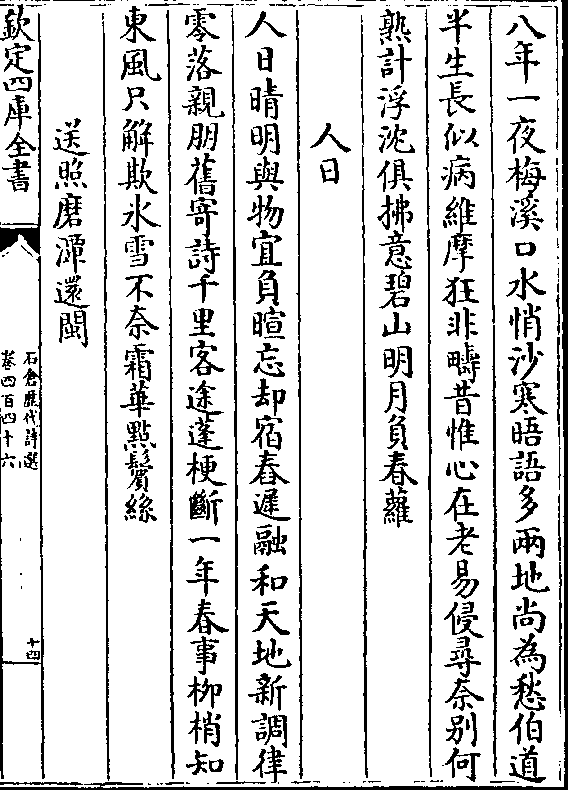 八年一夜梅溪口水悄沙寒晤語多兩地尚為愁伯道
半生長似病維摩狂非疇昔惟心在老易侵尋奈別何
熟計浮沈俱拂意碧山明月負春蘿
人日
人日晴明與物宜負暄忘却宿春遲融和天地新調律
零落親朋舊寄詩千里客途蓬梗斷一年春事柳梢知
東風只解欺氷雪不奈霜華㸃鬢絲
送照磨潭還閩
欽定四庫全書
石倉歷代詩選
卷四百四十六
十四